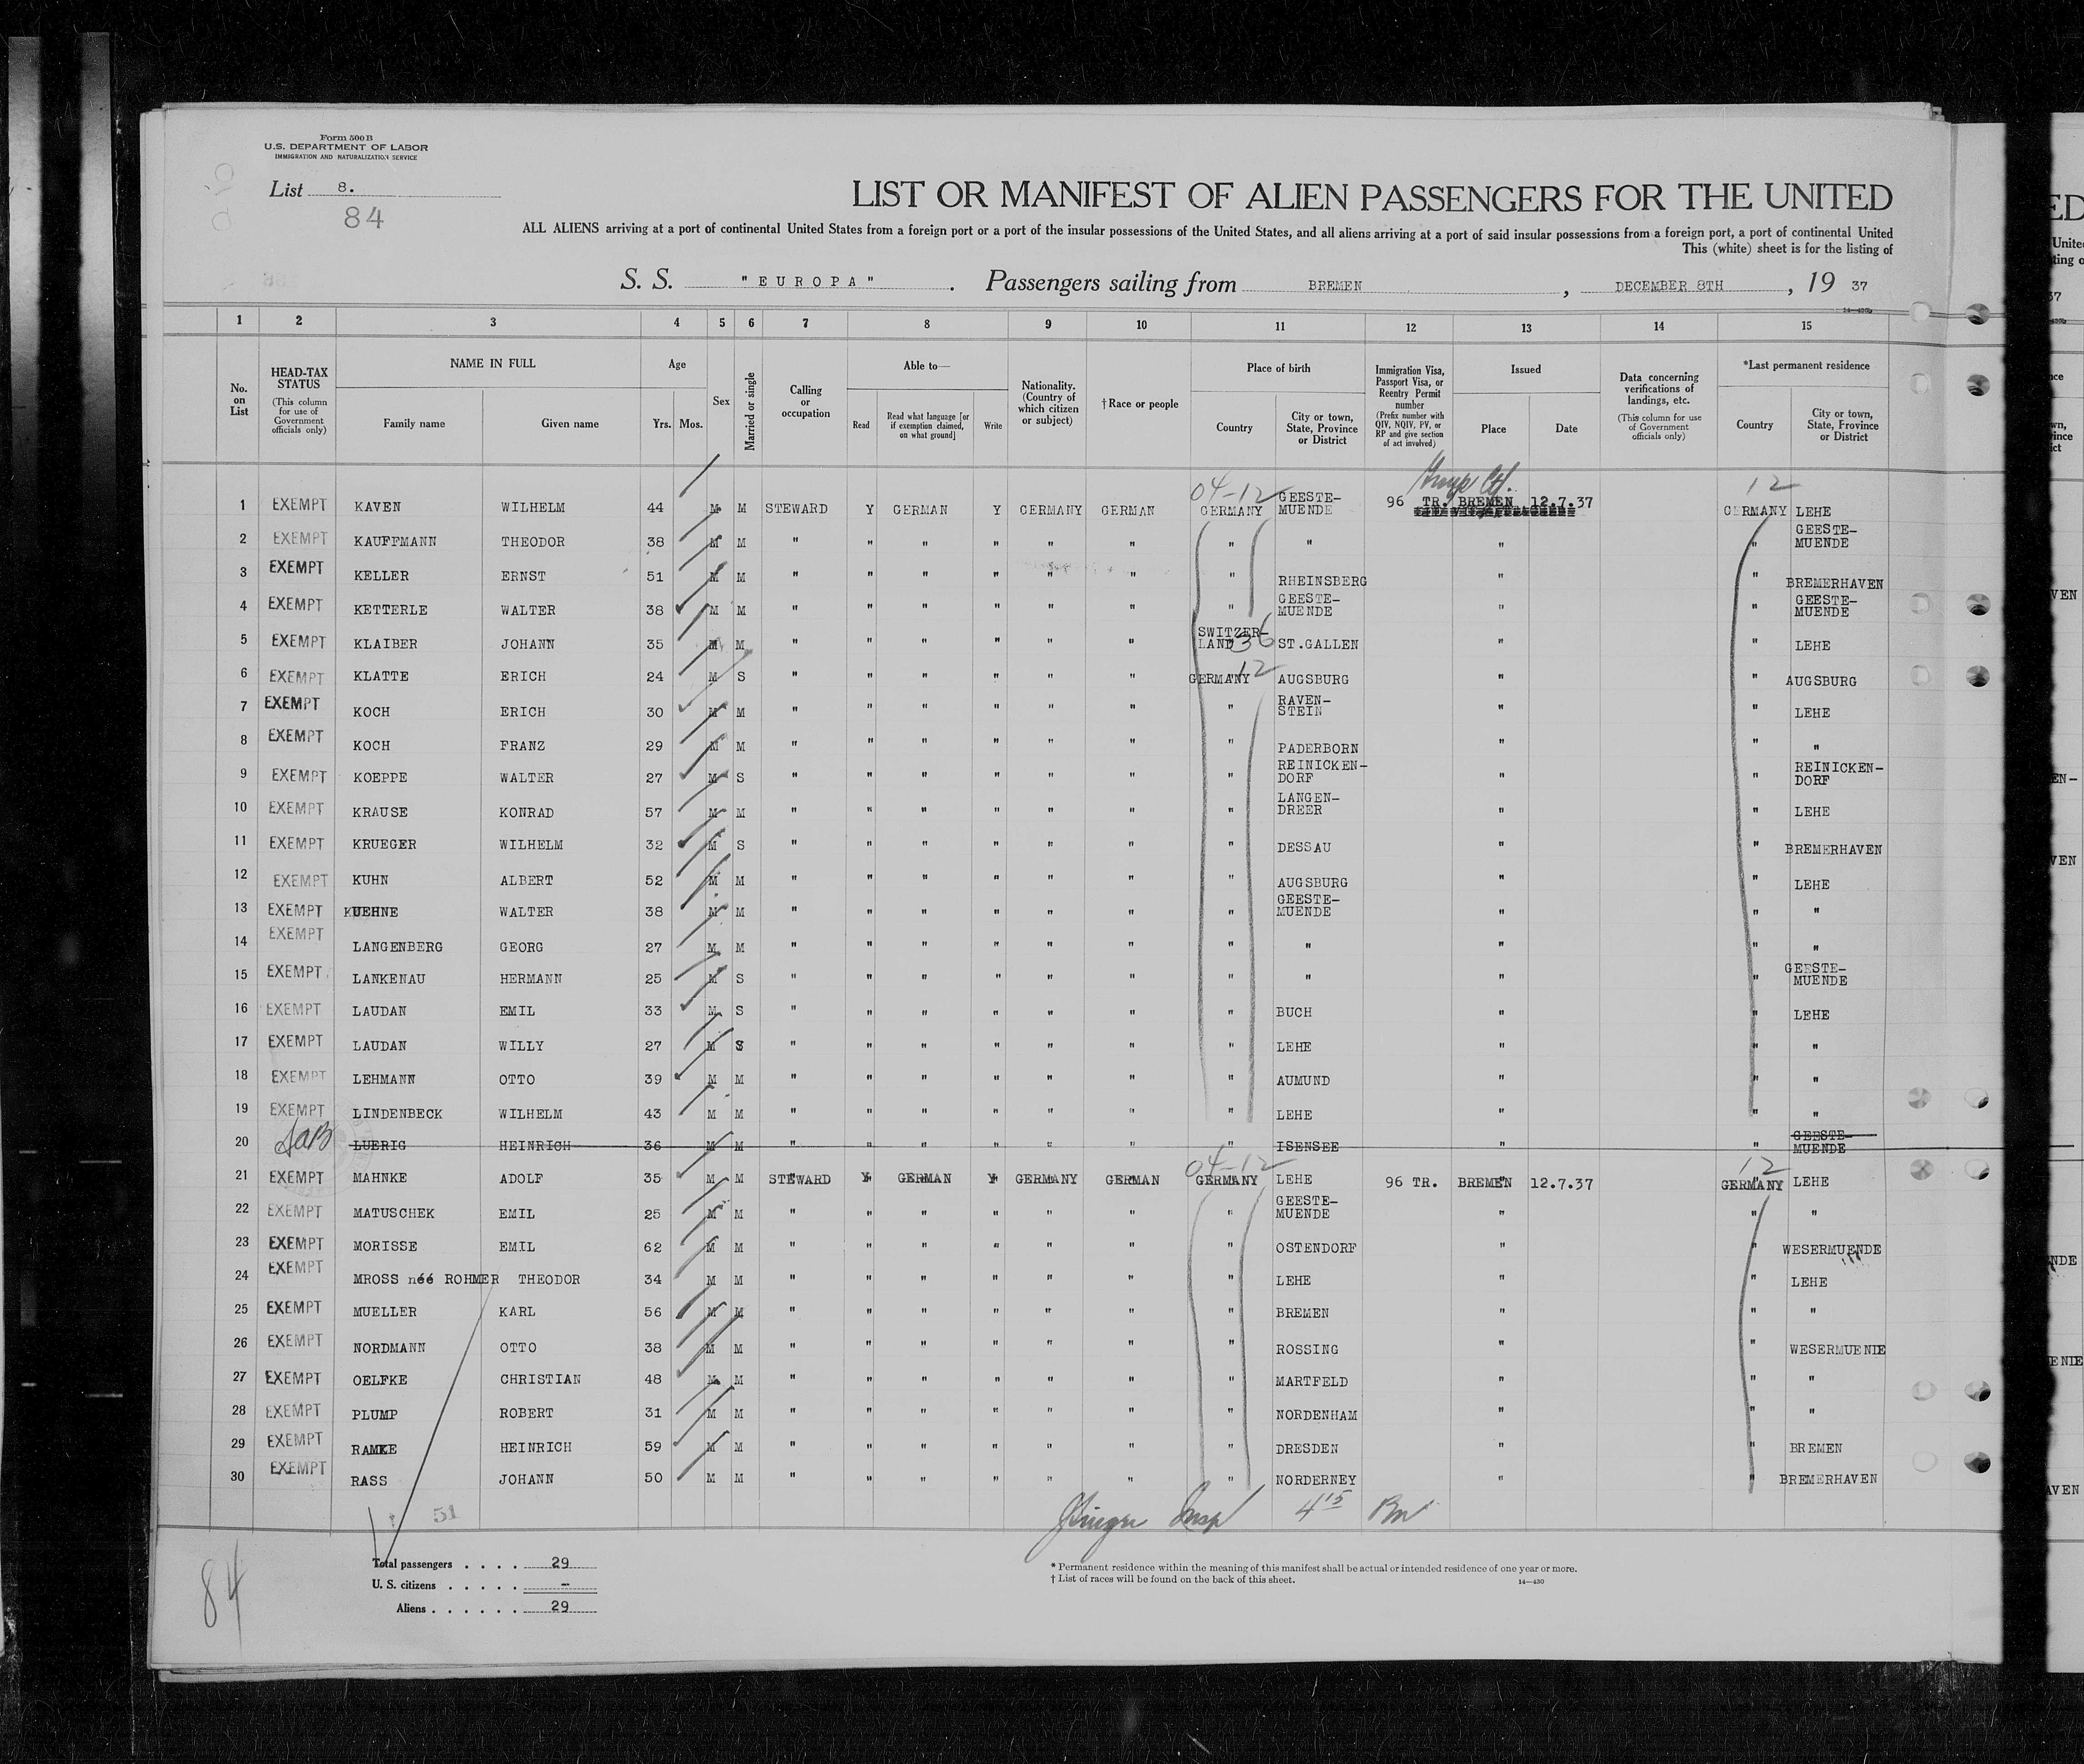 Form 500 B
U.S. DEPARTMENT OF LABOR
IMMIGRATION AND NATURALIZATION SERVICE
List 8.
84
LIST OR MANIFEST OF ALIEN PASSENGERS FOR THE UNITED
ALL ALIENS arriving at a port of continental United States from a foreign port or a port of the insular possessions of the United States, and all aliens arriving at a port of said insular possessions from a foreign port, a port of continental United
This (white) sheet is for the listing of
S. S. "EUROPA". Passengers sailing from BREMEN, DECEMBER 8TH, 19 37
14—430b
1 2 3 4 5 6 7 8 9 10 11 12 13 14 15
No. on List
HEAD-TAX STATUS (This column for use of Government officials only)
NAME IN FULL
Family name Given name
Age
Yrs. Mos.
Sex
Married or single
Calling or occupation
Able to—
Read
Read what language [or if exemption claimed, on what ground]
Write
Nationality. (Country of which citizen or subject)
† Race or people
Place of birth
Country
City or town, State, Province or District
Immigration Visa, Passport Visa, or Reentry Permit number (Prefix number with QIV, NQIV, PV, or RP and give section of act involved)
Issued
Place Date
Data concerning verifications of landings, etc. (This column for use of Government officials only)
*Last permanent residence
Country
City or town, State, Province or District
04-12 12
1 EXEMPT KAVEN WILHELM 44 M M STEWARD Y GERMAN Y GERMANY GERMAN GERMANY GEESTE-MUENDE 96 TR. BREMEN 12.7.37 GERMANY LEHE
2 EXEMPT KAUFFMANN THEODOR 38 M M " " " " " " " " " " GEESTE-MUENDE
3 EXEMPT KELLER ERNST 51 M M " " " " " " " RHEINSBERG " " BREMERHAVEN
4 EXEMPT KETTERLE WALTER 38 M M " " " " " " " GEESTE-MUENDE " " GEESTE-MUENDE
5 EXEMPT KLAIBER JOHANN 35 M M " " " " " " SWITZER-LAND 36 ST.GALLEN " " LEHE
6 EXEMPT KLATTE ERICH 24 M S " " " " " " GERMANY 12 AUGSBURG " " AUGSBURG
7 EXEMPT KOCH ERICH 30 M M " " " " " " " RAVEN-STEIN " " LEHE
8 EXEMPT KOCH FRANZ 29 M M " " " " " " " PADERBORN " " "
9 EXEMPT KOEPPE WALTER 27 M S " " " " " " " REINICKEN-DORF " " REINICKEN-DORF
10 EXEMPT KRAUSE KONRAD 57 M M " " " " " " " LANGEN-DREER " " LEHE
11 EXEMPT KRUEGER WILHELM 32 M S " " " " " " " DESSAU " " BREMERHAVEN
12 EXEMPT KUHN ALBERT 52 M M " " " " " " " AUGSBURG " " LEHE
13 EXEMPT KUEHNE WALTER 38 M M " " " " " " " GEESTE-MUENDE " " "
14 EXEMPT LANGENBERG GEORG 27 M M " " " " " " " " " " "
15 EXEMPT LANKENAU HERMANN 25 M S " " " " " " " " " " GEESTE-MUENDE
16 EXEMPT LAUDAN EMIL 33 M S " " " " " " " BUCH " " LEHE
17 EXEMPT LAUDAN WILLY 27 M S " " " " " " " LEHE " " "
18 EXEMPT LEHMANN OTTO 39 M M " " " " " " " AUMUND " " "
19 EXEMPT LINDENBECK WILHELM 43 M M " " " " " " " LEHE " " "
20 LUERIG HEINRICH 36 M M " " " " " " " ISENSEE " " GEESTE-MUENDE
04-12 12
21 EXEMPT MAHNKE ADOLF 35 M M STEWARD Y GERMAN Y GERMANY GERMAN GERMANY LEHE 96 TR. BREMEN 12.7.37 GERMANY LEHE
22 EXEMPT MATUSCHEK EMIL 25 M M " " " " " " " GEESTE-MUENDE " " "
23 EXEMPT MORISSE EMIL 62 M M " " " " " " " OSTENDORF " " WESERMUENDE
24 EXEMPT MROSS néé ROHMER THEODOR 34 M M " " " " " " " LEHE " " LEHE
25 EXEMPT MUELLER KARL 56 M M " " " " " " " BREMEN " " "
26 EXEMPT NORDMANN OTTO 38 M M " " " " " " " ROSSING " " WESERMUENIE
27 EXEMPT OELFKE CHRISTIAN 48 M M " " " " " " " MARTFELD " " "
28 EXEMPT PLUMP ROBERT 31 M M " " " " " " " NORDENHAM " " "
29 EXEMPT RAMKE HEINRICH 59 M M " " " " " " " DRESDEN " " BREMEN
30 EXEMPT RASS JOHANN 50 M M " " " " " " " NORDERNEY " " BREMERHAVEN
51
Insp 4 15
84
Total passengers . . . . 29
U. S. citizens . . . . . –
Aliens . . . . . . 29
* Permanent residence within the meaning of this manifest shall be actual or intended residence of one year or more.
† List of races will be found on the back of this sheet.
14—430